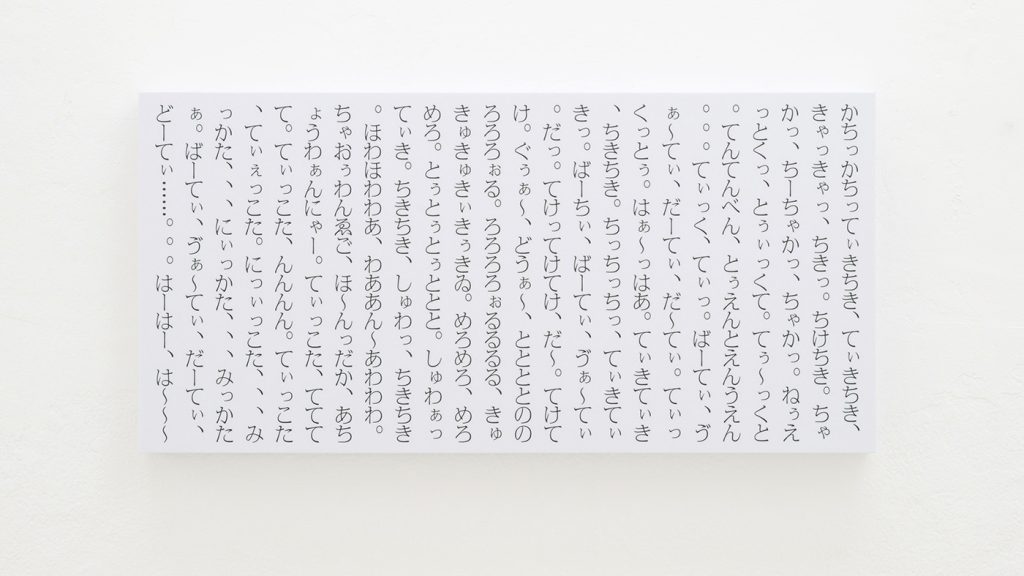 かちっかちってぃきちき、てぃきちき、
きゃっきゃっ、ちきっ。ちけちき。ちゃ
かっ、ちーちゃかっ、ちゃかっ。ねぅえ
っとくっ、とぅぃっくて。てぅ〜っくと
。てんてんべん、とぅえんとえんうえん
。。。てぃっく、てぃっ。ばーてぃ、ゔ
ぁ〜てぃ、だーてぃ、だ〜てぃ。てぃっ
くっとぅ。はぁ〜っはあ。てぃきてぃき
、ちきちき。ちっちっちっ、てぃきてぃ
きっ。ばーちぃ、ばーてぃ、ゔぁ〜てぃ
。だっ。てけってけてけ、だ〜。てけて
け。ぐぅぁ〜、どうぁ〜、ととととのの
ろろろぉる。ろろろろぉるるるる、きゅ
きゅきゅきぃきぅきゐ。めろめろ、めろ
めろ。とぅとぅとぅととと。しゅわぁっ
てぃき。ちきちき、しゅわっ、ちきちき
。ほわほわわあ、わああん〜あわわわ。
ちゃおぅわんゑご、ほ〜んっだか、あち
ょうわぁんにゃー。てぃっこた、ててて
て。てぃっこた、んんんん。てぃっこた
、てぃえっこた。にっぃっこた、、、み
っかた、、、にぃっかた、、、みっかた
ぁ。ばーてぃ、ゔぁ〜てぃ、だーてぃ、
どーてぃ……。。。はーはー、は〜〜〜